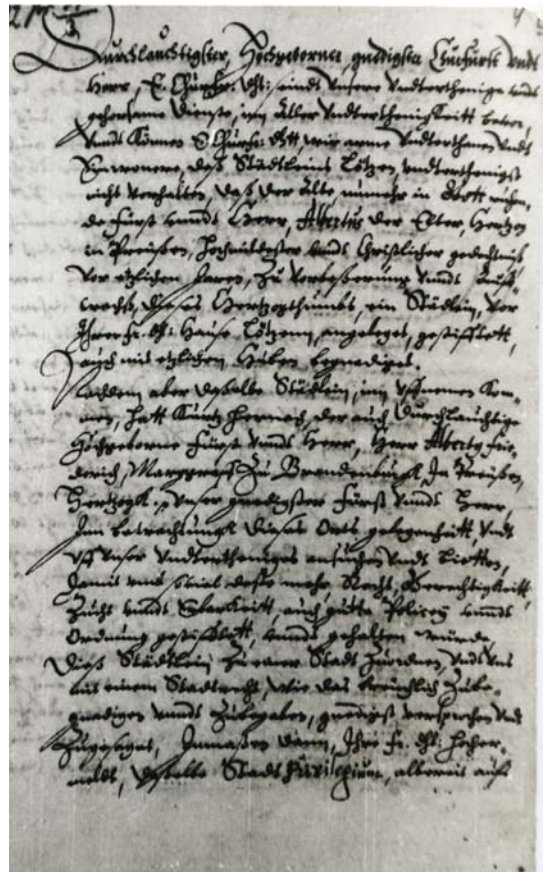 Durchlauchtigster, Hochgeborner, gnedigster Churfurst vndt
Herr, E. Churfr. Dht: seindt vnsere vndterthenige vndt
gehorsame Dienste, inn aller vndterthenigkeitt bereit,
vnndt können E. Churfr. Dht wir arme vndterthanen vndt
Einwonere, deß Städtleins Lötzen, vndterthenigst
nicht verhalten, daß der alte, nunmehr in Gott ruhen,
de Fürst vnndt Herr, Albertus der Elter, Hertzog
in Preußen, hochmildester vndt Christlicher gedechtnis,
vor etzlichen Jaren, zu verbeßerung vnndt
wachs, dieses Hertzogthumbs, ein Städlein, vor
Ihrer fr. Dht: Hause Lötzenn, angeleget, gestifftett,
auch mit etzlichen Huben begnadiget.
Nachdem aber daßelbe Städlein, inn vffnemen kom-
men, hatt kurtz hernach, der auch Durchlauchtige
Hochgeborne Fürst vnndt Herr, Herr Albertg Frie-
derich, Marggraff zu Brandenburgk, In Preußen,
Hertzogk, vnser gnedigster Fürst vnndt Herr,
Inn betrachtungk dieses Orts gelegenheitt, vndt
vff vnser vndertheniges ansuchen vndt bietten,
damit vmb soviel desto mehr, Recht, Gerechtigkeitt,
Zucht vnndt Erbarkeitt, auch gute Policey vnndt
Ordnung gestifftett, vnndt gehalten würde
Dieß Städtlein zu einer Stadt zuordnen, vndt vns
mit einem Stadtrecht, wie das breuchlich zube-
gnadigen vnndt zubegaben, gnedigst versprochen vndt
zugesaget, Inmaßen dann, Ihre fr. Dht: hocher-
meldt, daßelbe Stadt Privilegium, albereit auff